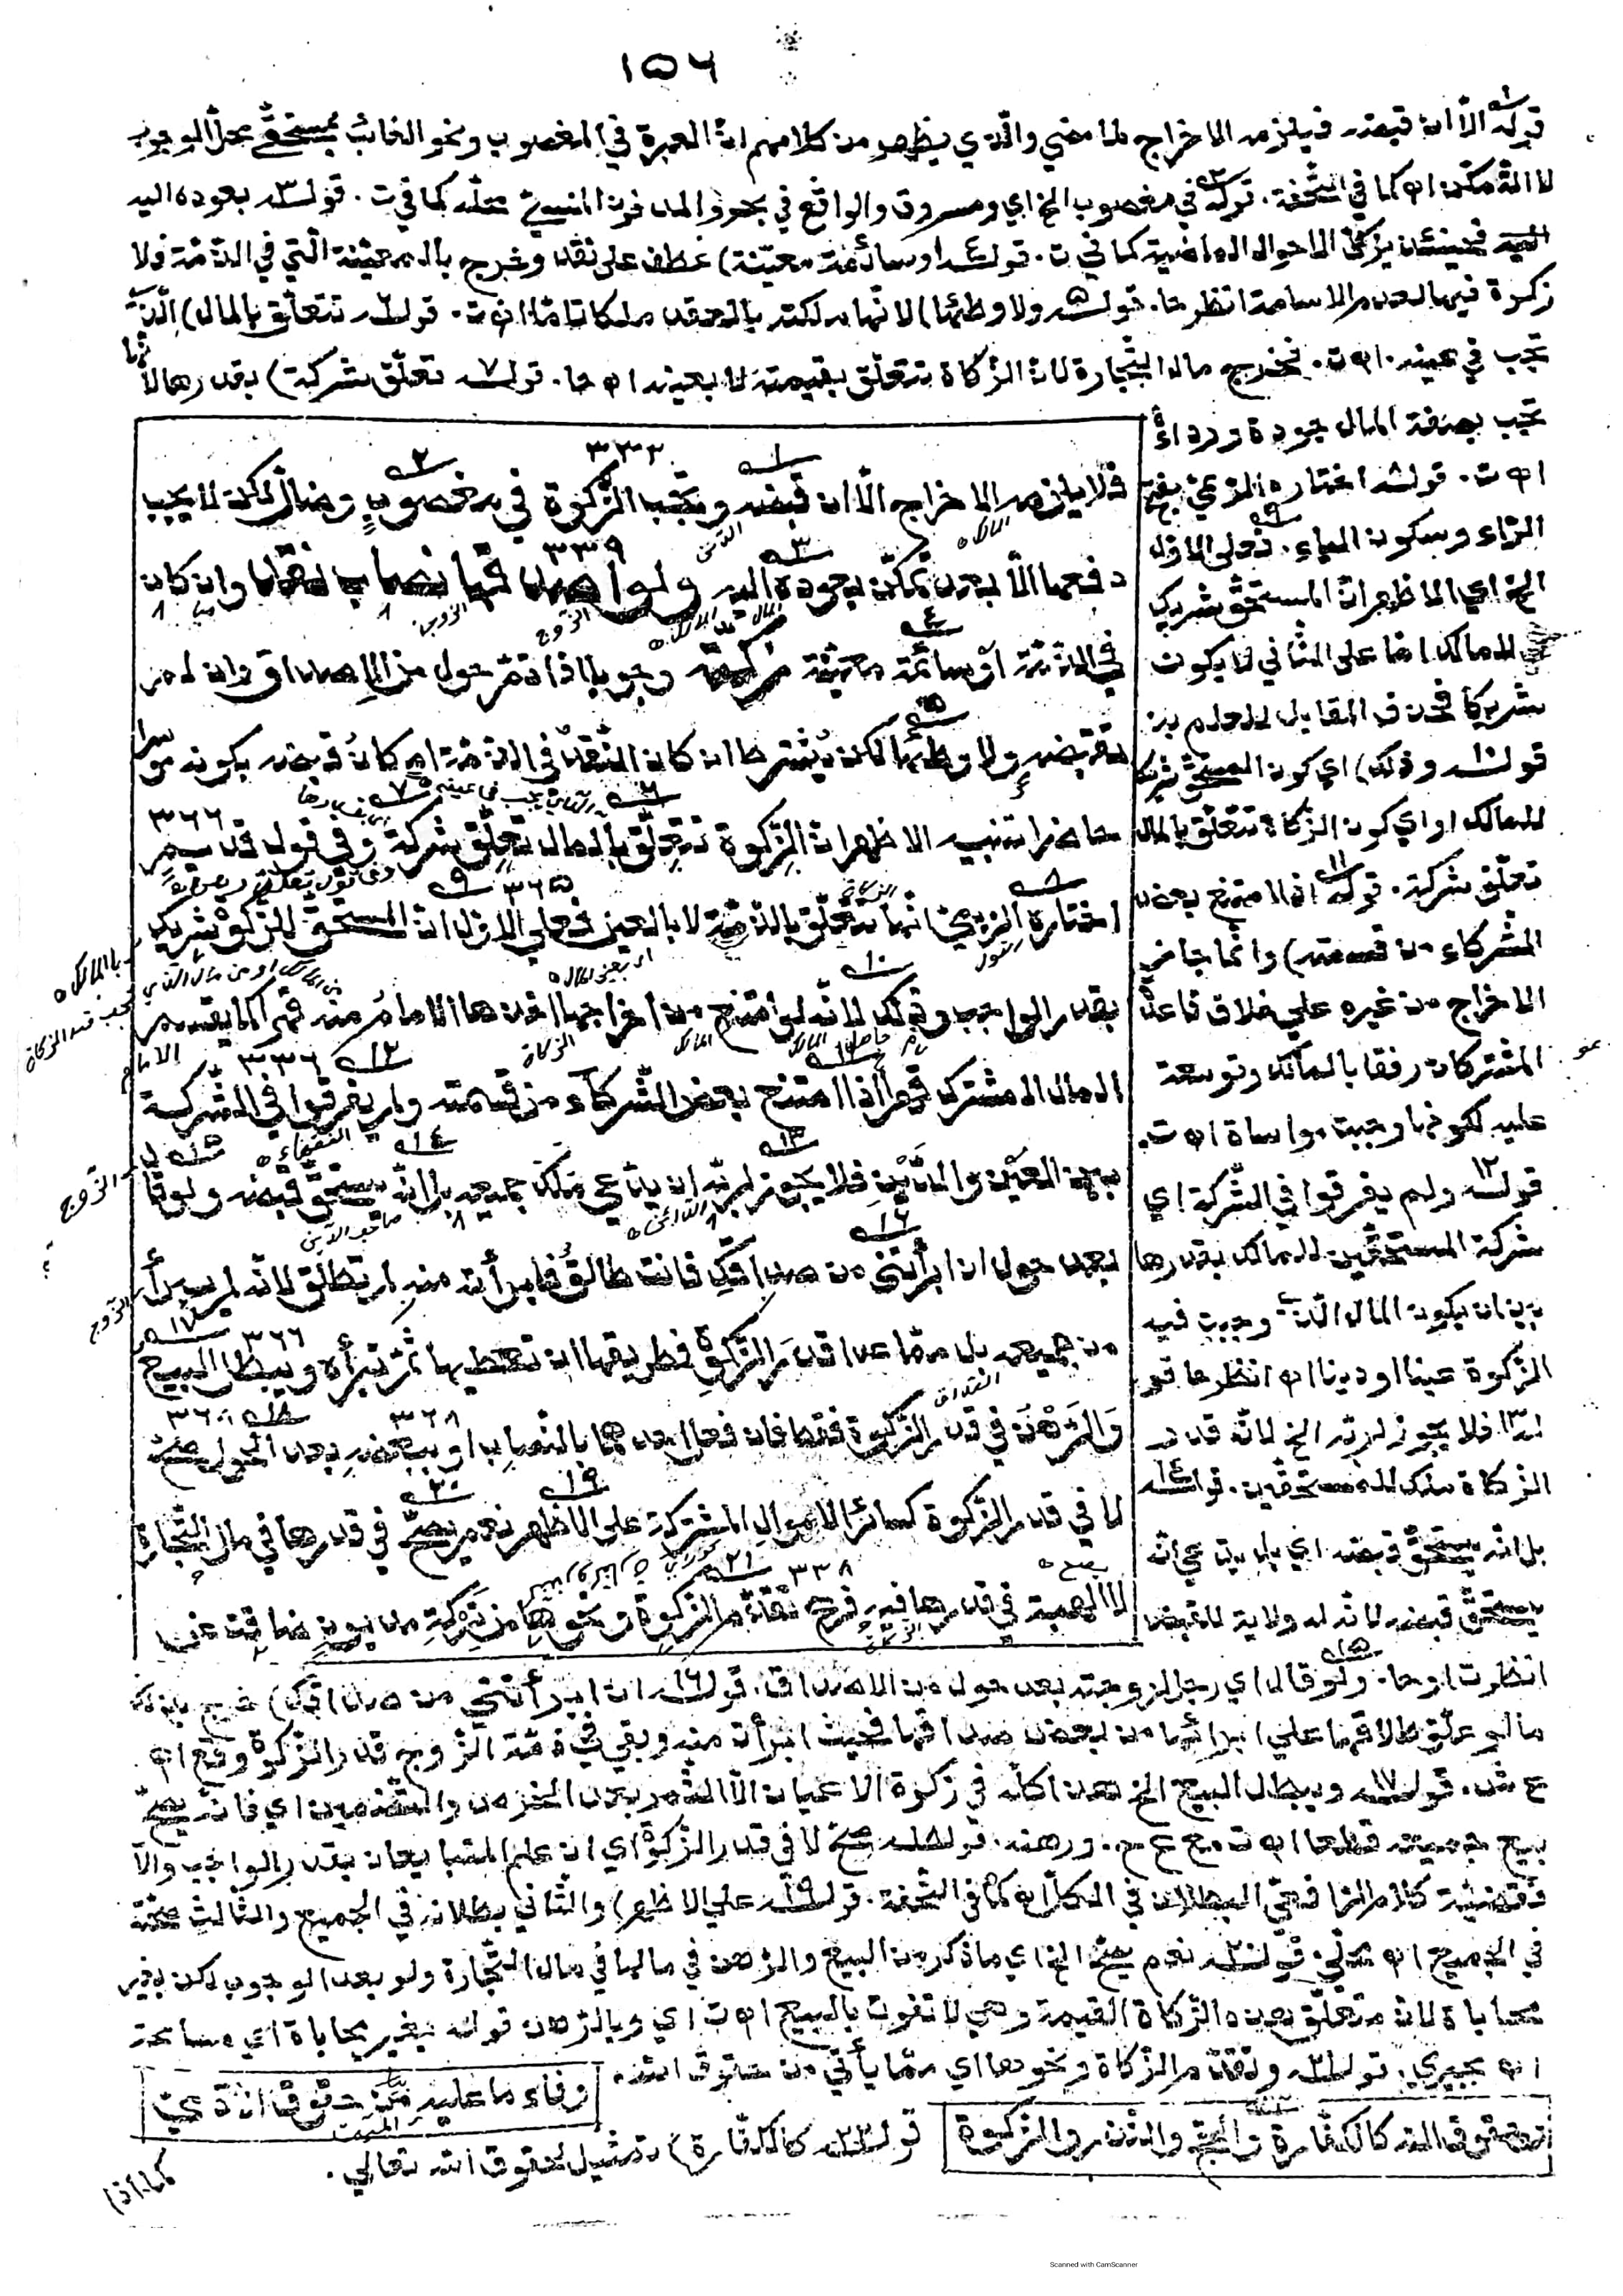 ١٥٦
قوله الا ان قبضه فيلزمه الاخراج لما مضي والذي يظهر من كلامهم ان العبرة في المغصوب ونحو الغائب بمستحق محل الوجوب
لا التمكن اه كما في التحفة. قوله في مغصوب الخ اي ومسروق والواقع في بحر والمدفون المنسي محله كما في ت. قوله بعوده اليه
فحينئذ يزكي الاحوال الماضية كما في ت. قوله او سائمة معينة) عطف على نقد وخرج بالمعينة التي في الذمة فلا
زكوة فيها لعدم الاسامة انظرها. قوله ولا وطئها) لانها ملكته بالعقد ملكا تاما اه ت. قوله تتعلق بالمال) الذي
تجب في عينه. اه ت. فخرج مال التجارة لان الزكاة تتعلق بقيمته لا بعينه اه حا. قوله تعلق شركة) بقدرها لانها
تجب بصفة المال جودة ورداءة
اه ت. قوله اختاره الريمي بفتح
الراء وسكون الياء. فعلى الاول
الخ اي الاظهر ان المستحق شريك
للمالك اما على الثاني لا يكون
شريكا فحذف المقابل للعلم به.
قوله وذلك) اي كون المستحق شريكا
للمالك او اي كون الزكاة تتعلق بالمال
تعلق شركة. قوله اذا امتنع بعض
الشركاء من قسمته) وانما جاز
الاخراج من غيره علي خلاف قاعدة
المشتركات رفقا بالمالك وتوسعة
عليه لكونها وجبت مواساة اه ت.
قوله ولم يفرقوا في الشركة اي
شركة المستحقين للمالك بقدرها
بين ان يكون المال الذي وجبت فيه
الزكوة عينا او دينا اه انظرها قو
له فلا يجوز لربه الخ لانه قدر
الزكاة ملك للمستحقين. قوله
بل انه يستحق قبضه اي بل يدعي انه
يستحق قبضه لانه له ولاية القبض
فلا يلزمه الاخراج الا ان قبضه وتجب الزكوة في مغصوب وضال لكن لا يجب
دفعها الا بعد تمكن بعوده اليه ولو اصدقها نصاب نقد وان كان
في الذمة او سائمة معينة زكته وجوبا اذا تم حول من الاصداق وان لم
تقبضه ولا وطئها لكن يشترط ان كان النقد في الذمة امكان قبضه بكونه موسرا
حاضرا تنبيه الاظهر ان الزكوة تتعلق بالمال تعلق شركة وفي قول قديم
اختاره الريمي انها تتعلق بالذمة لا بالعين فعلي الاول ان المستحق للزكوة شريك
بقدر الواجب وذلك لانه لو امتنع من اخراجها اخذها الامام منه قهرا كما يقسم
المال المشترك قهرا اذا امتنع بعض الشركاء من قسمته ولم يفرقوا في الشركة
بين العين والدين فلا يجوز لربه ان يدعي ملك جميعه بل انه يستحق قبضه ولو قال
بعد حول ان ابرأتني من صداقك فانت طالق فابرأته منه لم تطلق لانه لم يبرأ
من جميعه بل مما عدا قدر الزكوة فطريقها ان تعطيها ثم تبرأه ويبطل البيع
والرهن في قدر الزكوة فقط فان فعل احدهما بالنصاب او ببعضه بعد الحول صح
لا في قدر الزكوة كسائر الاموال المشتركة على الاظهر نعم يصح في قدرها في مال التجارة
لا الهبة في قدرها فيه فرع تقدم الزكوة ونحوها من تركة مديون ضاقت عن
انظر ت او حا. ولو قال اي رجل لزوجته بعد حول من الاصداق. قوله ان ابرأتني من صداقك) خرج بذلك
ما لو علق طلاقها علي ابرائها من بعض صداقها فحيث ابرأت منه وبقي في ذمة الزوج قدر الزكوة وقع اه.
ع ش. قوله ويبطل البيع الخ هذا كله في زكوة الاعيان الا الثمر بعد الخرص والتضمين اي فانه يصح
بيع جميعه قطعا اه ت مع ع ح. ورهنه. قوله صح لا في قدر الزكوة اي ان علم المتبايعان بقدر الواجب والا
فقضية كلام الرافعي البطلان في الكل اه كما في التحفة. قوله علي الاظهر) والثاني بطلانه في الجميع والثالث صحته
في الجميع اه محلي. قوله نعم يصح الخ اي ما ذكر من البيع والرهن في مالها في مال التجارة ولو بعد الوجوب لكن بغير
محاباة لان متعلق هذه الزكاة القيمة وهي لا تفوت بالبيع اه ت اي وبالرهن قوله بغير محاباة اي مسامحة
اه بجيري. قوله وتقدم الزكاة ونحوها اي مما يأتي من حقوق الله.
وفاء ما عليه من حقوق ادمي
وحقوق الله كالكفارة والحج والنذر والزكوة
قوله كالكفارة) تمثيل لحقوق الله تعالي.
كما اذا
Scanned with CamScanner